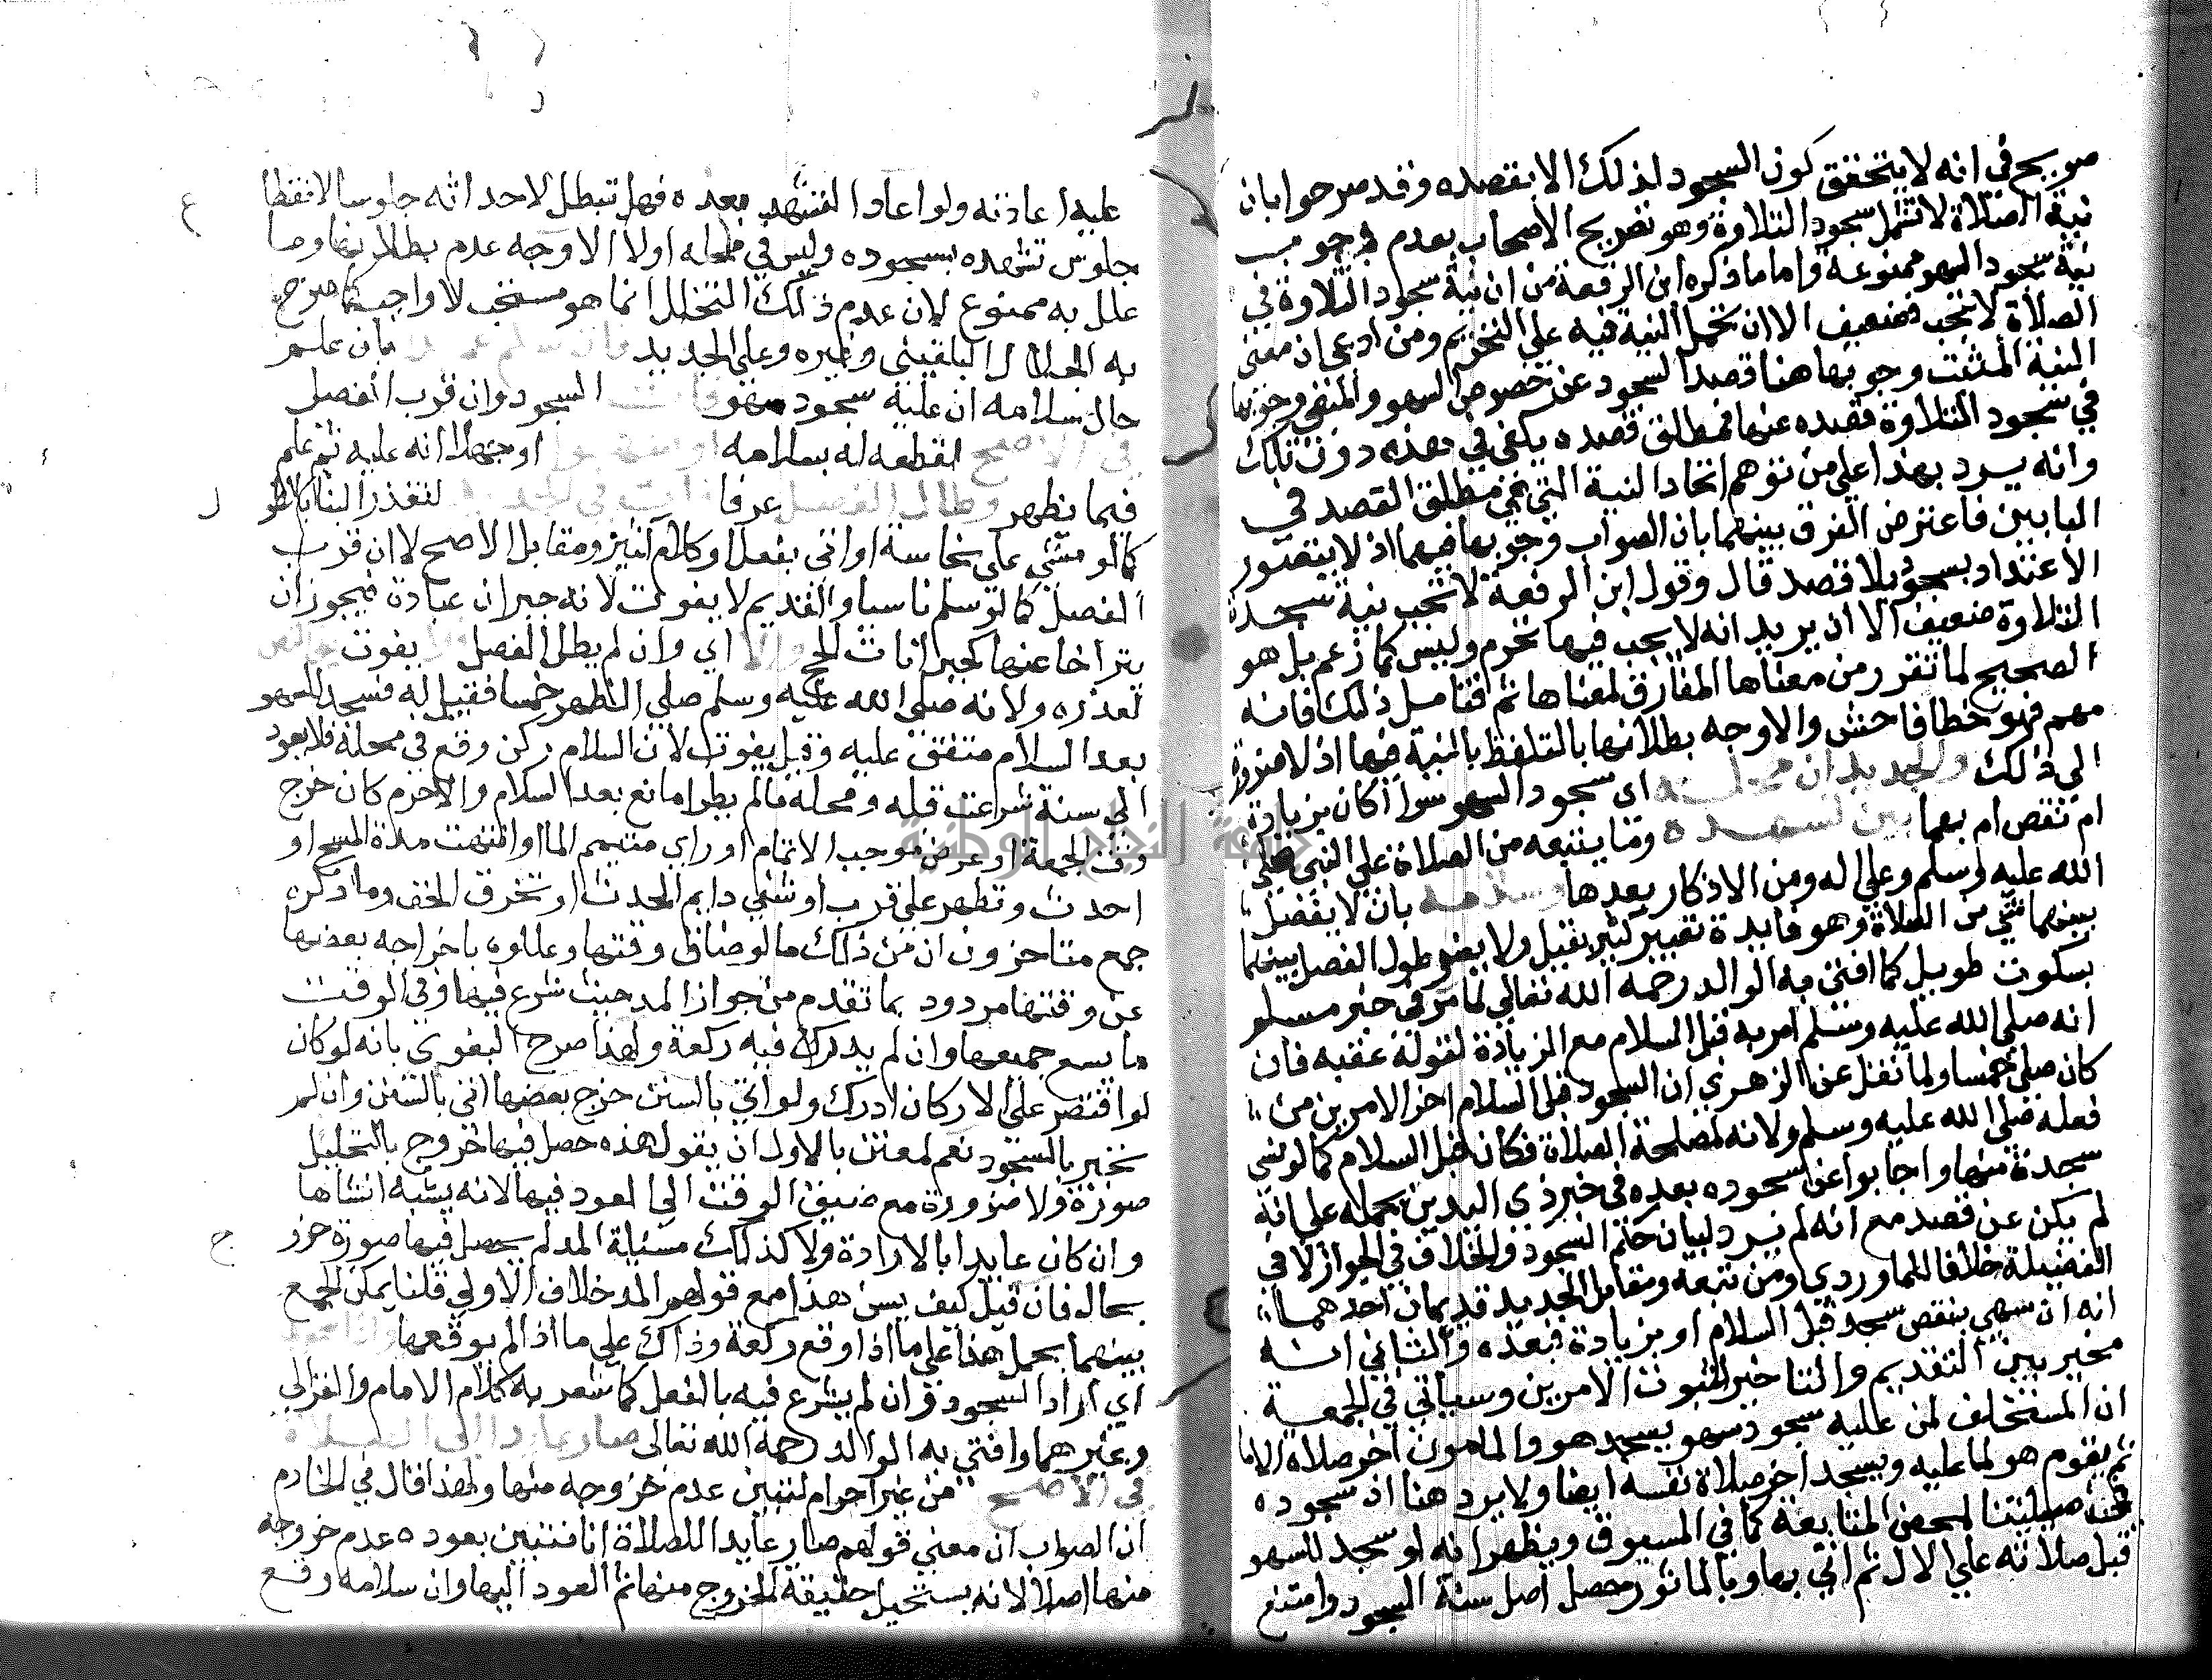 صريح في انه لا يتحقق كون السجود لذلك الا بقصده وقد صرحوا بان
نية الصلاة لا تشمل سجود التلاوة وهو تصريح الأصحاب بعدم وجوب
نية سجود السهو ممنوعة واما ما ذكره ابن الرفعة من ان نية سجود التلاوة في
الصلاة لا تجب فضعيف الا ان تحمل النية فيه على التحرم ومن ادعى ان معنى
النية المثبت وجوبها هنا قصد السجود عن خصوص السهو والمنفي وجوبها
في سجود التلاوة قصده عنها فمطلق قصده يكفي في هذه دون تلك
وانه يرد بهذا على من توهم اتحاد النية التي هي مطلق القصد في
البابين فاعترض الفرق بينهما بان الصواب وجوبها فيهما اذ لا يتصور
الاعتداد بسجود بلا قصد قال وقول ابن الرفعة لا تجب نية سجدة
التلاوة ضعيف الا ان يريد انه لا يجب فيها تحرم وليس كما زعم بل هو
الصحيح لما تقرر من معناها المفارق لمعناها ثم فتامل ذلك فانه
مهم فهو خطا فاحش والاوجه بطلانها بالتلفظ بالنية فيها اذ لا ضرورة
الى ذلك والجديد ان محله اي سجود السهو سوا اكان بزيادة
ام نقص ام بهما بين تشهده وما يتبعه من الصلاة على النبي صلى
الله عليه وسلم وعلى اله ومن الاذكار بعدها وسلامه بان لا يفصل
بينهما شي من الصلاة وهو فايدة تقييد كثير بقبل ولا يضر طول الفصل بينهما
بسكوت طويل كما افتى به الوالد رحمه الله تعالى لما مر في خبر مسلم
انه صلى الله عليه وسلم امر به قبل السلام مع الزيادة لقوله عقبه فان
كان صلى خمسا ولما نقل عن الزهري ان السجود قبل السلام اخر الامرين من
فعله صلى الله عليه وسلم ولانه لمصلحة الصلاة فكان قبل السلام كما لو نسي
سجدة منها واجابوا عن سجوده بعده في خبر ذي اليدين بحمله على انه
لم يكن عن قصد مع انه لم يرد لبيان حكم السجود والخلاف في الجواز لا في
الفضيلة خلافا للماوردي ومن تبعه ومقابل الجديد قديمان احدهما
انه ان سهى بنقص سجد قبل السلام او بزيادة فبعده والثاني انه
مخير بين التقديم والتاخير لثبوت الامرين وسياتي في الجمعة
ان المستخلف لمن عليه سجود سهو يسجد هو والمامون اخر صلاة الاما
ثم يقوم هو لما عليه ويسجد اخر صلاة نفسه ايضا ولا يرد هنا اذ سجوده
لمحض المتابعة كما في المسبوق ويظهر انه لو سجد للسهو
قبل صلاته على الال ثم اتى بها وبالماثور حصل اصل سنة السجود وامتنع
عليه اعادته ولو اعاد التشهد بعده فهل تبطل لاحداثه جلوسا لانقطا
جلوس تشهده بسجوده وليس في محله اولا الاوجه عدم بطلانها وما
علل به ممنوع لان عدم ذلك التخلل انما هو مستحب لا واجب كما صرح
به الجلال البلقيني وغيره وعلى الجديد فان سلم عمدا بان علم
حال سلامه ان عليه سجود سهو فات السجود وان قرب الفصل
في الاصح لقطعه له بسلامه او سهوا او جهلا انه عليه ثم علم
فيما يظهر وطال الفصل عرفا فات في الجديد لتعذر البنا كالو
كالو مشى على نجاسة او اتى بفعل او كلام كثير ومقابل الاصح لا ان قرب
الفصل كما لو سلم ناسيا والقديم لا يفوت لانه جبران عبادة فيجوز ان
يتراخا عنها كجبرانات الحج والا اي وان لم يطل الفصل فلا يفوت على النص
لعذره ولانه صلى الله عليه وسلم صلى الظهر خمسا فقيل له فسجد للسهو
بعد السلام متفق عليه وقيل يفوت لان السلام ركن وقع في محله فلا يعود
الى سنة شرعت قبله ومحله ما لم يطرا مانع بعد السلام والا حرم كان خرج
وقت الجمعة او عرض موجب الاتمام او راي متيمم الما او انتهت مدة المسح او
احدث وتطهر على قرب او شفي دايم الحدث او تخرق الخف وما ذكره
جمع متاخرون ان من ذلك ما لو ضاق وقتها وعللوه باخراجه بعضها
عن وقتها مردود بما تقدم من جواز المد حيث شرع فيها وفي الوقت
ما يسع جميعها وان لم يدرك فيه ركعة ولهذا صرح البغوي بانه لو كان
لو اقتصر على الاركان ادرك ولو اتى بالسنن خرج بعضها اتى بالسنن وان لم
تجبر بالسجود نعم لمعتن بالاول ان يقول هذه حصل فيها خروج بالتحليل
صورة ولا ضرورة مع ضيق الوقت الى العود فيها لانه يشبه انشاها
وان كان عايدا بالارادة ولا كذلك مسئلة المد لم يحصل فيها صورة خرو
بحال فان قيل كيف يسن هذا مع قولهم المد خلاف الاولى قلنا يمكن الجمع
بينهما بحمل هذا على ما اذا اوقع ركعة وذاك على ما اذا لم يوقعها واذا سجد
اي اراد السجود وان لم يشرع فيه بالفعل كما شعر به كلام الامام والغزالي
وغيرهما وافتى به الوالد رحمه الله تعالى صار عايدا الى الصلاة
في الاصح من غير احرام لتبين عدم خروجه منها ولهذا قال في الخادم
ان الصواب ان معنى قولهم صار عايدا للصلاة انا نتبين بعوده عدم خروجه
منها اصلا لانه يستحيل حقيقة الخروج منها ثم العود اليها وان سلامه وقع